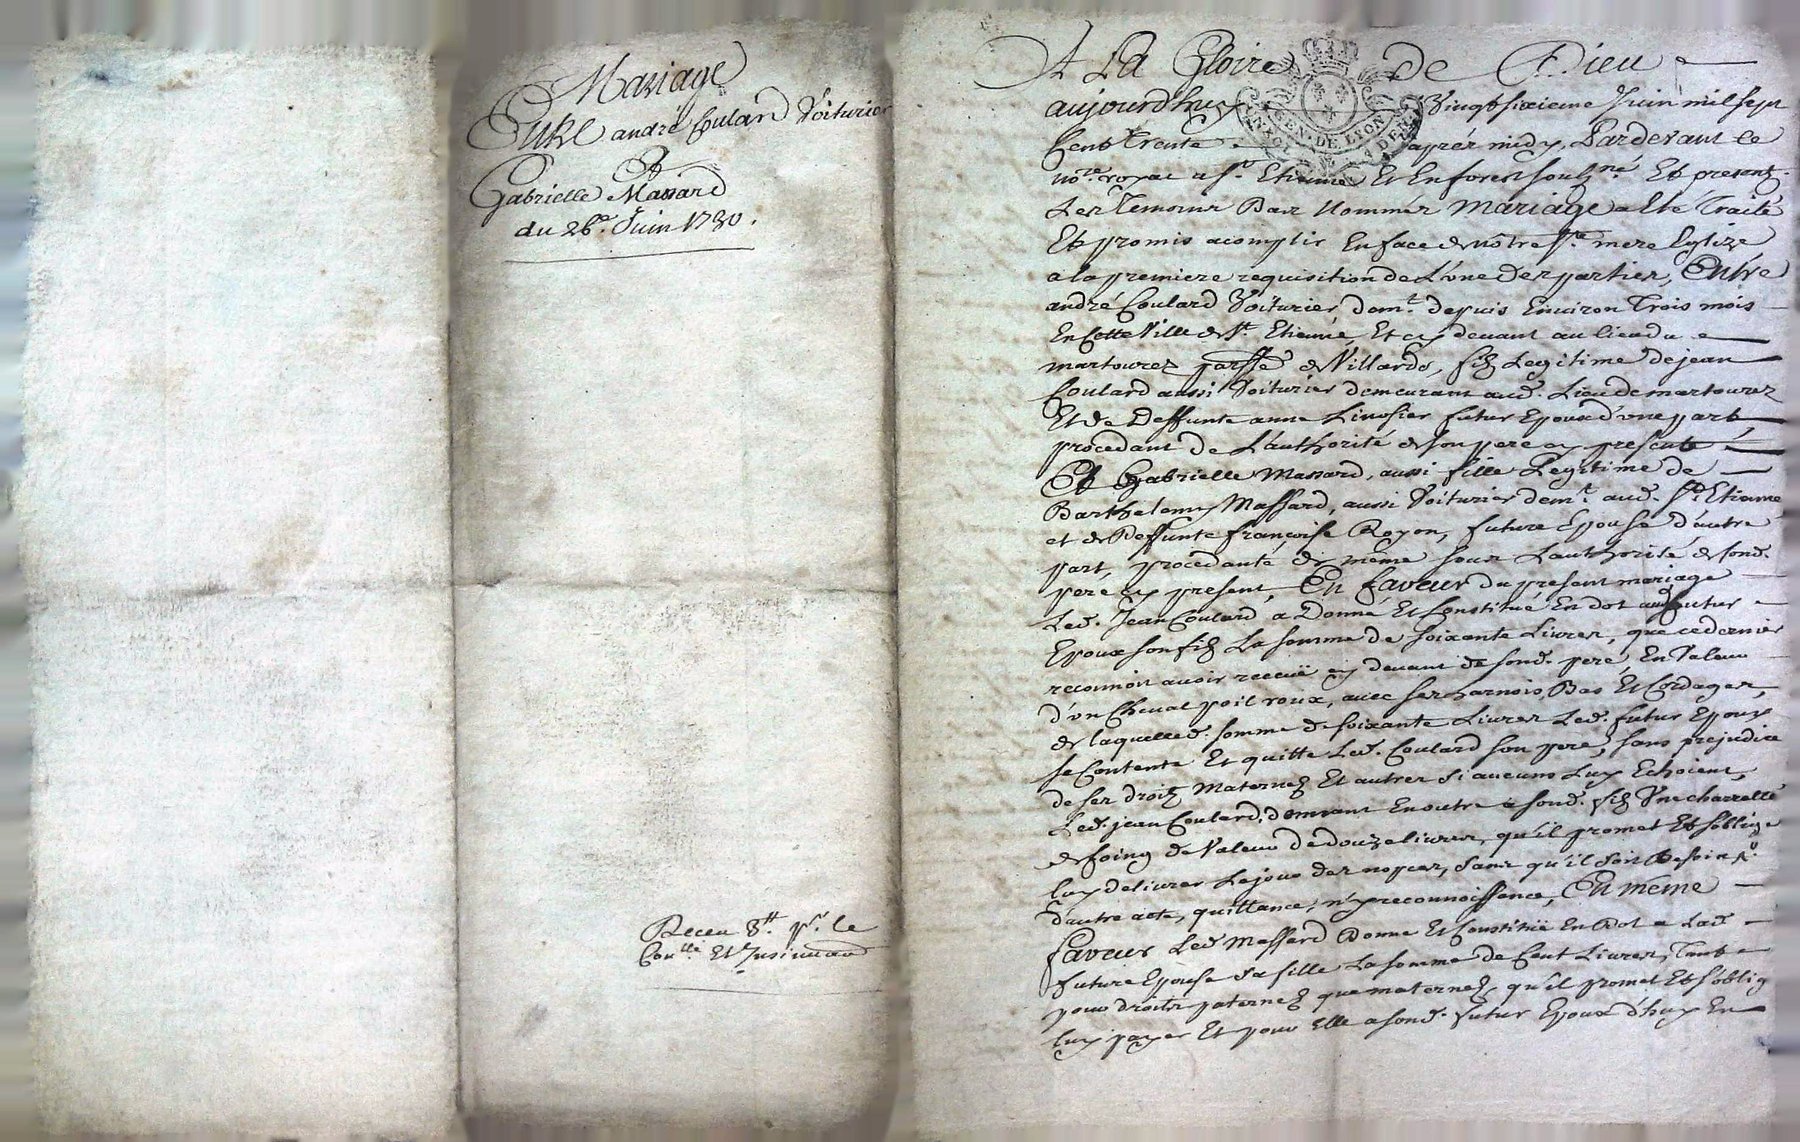 Mariage
Entre andré Coulard Voiturier
Et
Gabrielle Massard
du 26e. Juin 1730.
Receu 8tt pr. le
Conlle Et Insinuaon
A LA Gloire de Dieu
aujourdhuy Vingtsixieme Juin mil sept
Cent Trente aprés midy, Pardevant le
nore. royal a St. Etienne Et En forest soubsné. Et presents
Les Temoins Bas Nommés Mariage a Eté Traité
Et promis acomplir En face de nôtre Ste. mere Eglize
a la premiere requisition de L'une des parties, Entre
andré Coulard Voiturier, demt. depuis Environ Trois mois
En Cette Ville de St. Etienne, Et cy devant au lieu de
martourez parsse de Villards, fils Legitime de jean
Coulard aussi Voiturier demeurant aud. Lieu de martourez
Et de Deffunte anne Linossier futur Epoux d'une part,
procedant de L'authorité de son pere cy present
Et Gabrielle Massard, aussi fille Legitime de
Barthelemy Massard, aussi Voiturier demt. aud. St. Etienne
et de Deffunte françoise Royon, future Epouse d'autre
part, procedante de même sous L'authorité de sond.
pere cy present, En faveur du present mariage
Led. Jean Coulard a Donné Et Constitué En dot aud. futur
Epoux son fils La somme de soixante Livres, que ce dernier
reconnoit avoir receüe cy devant de sond. pere, En Valeur
d'un Cheval poil roux, avec ses harnois, Bas Et Cordages,
de laquelle d. somme de soixante Livres Led. futur Epoux
se Contente Et quitte Led. Coulard son pere, sans prejudice
de ses droits Maternels Et autres si aucuns Luy Echoient,
Led. jean Coulard, donnant En outre a sond. fils Une charretté
de foing de Valeur de douze livres, qu'il promet Et s'oblige
luy delivrer Le jour des nopces, sans qu'il soit Besoin pr.
d'autre acte, quittance, n'y reconnoissence, En même
faveur Led. Massard Donne Et Constitüe En Dot a Lad.
future Epouse sa fille La somme de Cent Livres, Tant
pour droits paternels que maternels, qu'il promet Et s'oblige
luy payer Et pour Elle a sond. futur Epoux d'huy En
GEN. DE LYON